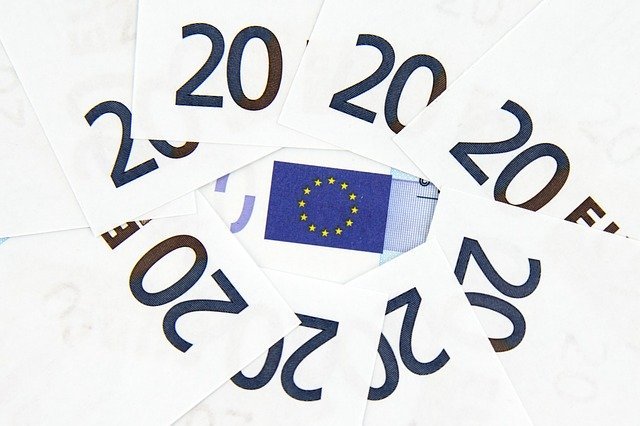 20
20
20
20 EU
20
20
20
20 E
©